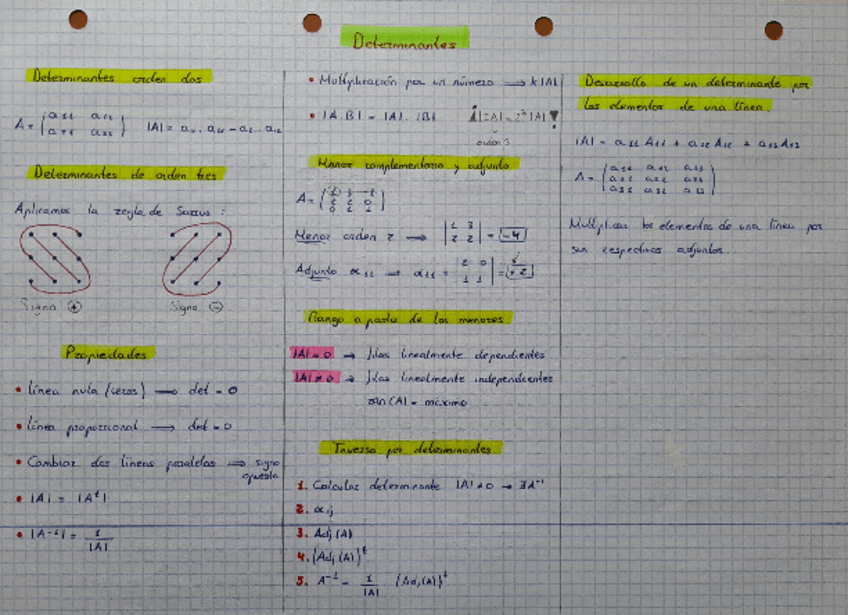 Determinantes
Determinantes orden dos
A = ( a₁₁ a₁₂
a₂₁ a₂₂ ) |A| = a₁₁ . a₂₂ - a₂₁ . a₁₂
Determinantes de orden tres
Aplicamos la regla de Sarrus :
Signo + Signo -
Propiedades
• Línea nula (ceros) → det = 0
• Línea proporcional → det = 0
• Cambiar dos líneas paralelas ⇒ signo
opuesto
• |A| = |Aᵗ|
• |A⁻¹| = 1
|A|
• Multiplicación por un número → k|A|
• |A.B| = |A| . |B|
orden 3
Menor complementario y adjunto
Menor orden 2 → | 1 3
2 2 | = -4
Adjunto α₁₁ → α₁₁ = | 2 0
1 1 | = + 2
Rango a partir de los menores
|A| = 0 → filas linealmente dependientes
|A| ≠ 0 → filas linealmente independientes
ran (A) = máximo
Inversa por determinantes
1. Calcular determinante |A| ≠ 0 → ∃A⁻¹
2. αij
3. Adj (A)
4. (Adj (A))ᵗ
5. A⁻¹ = 1 (Adj (A))ᵗ
|A|
Desarrollo de un determinante por
los elementos de una línea.
|A| = a₁₁ A₁₁ + a₁₂ A₁₂ + a₁₃ A₁₃
A = ( a₁₁ a₁₂ a₁₃
a₂₁ a₂₂ a₂₃
a₃₁ a₃₂ a₃₃ )
Multiplicar los elementos de una línea por
sus respectivos adjuntos.